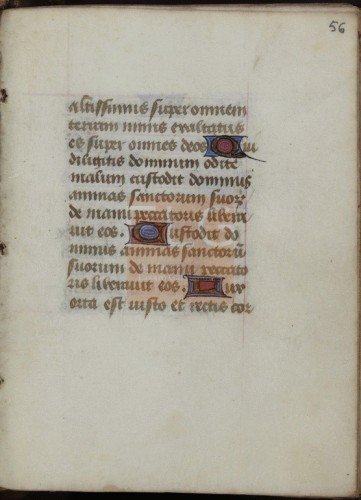 56
altissimus super omnem
terram nimis exaltatus
es super omnes deos Qui
diligitis dominum odite
malum custodit dominus
animas sanctorum suoꝝ
de manu peccatoris libera
uit eos. Custodit do
minus animas sanctoru̅
suorum de manu peccato
ris liberauit eos. Lux
orta est iusto et rectis cor